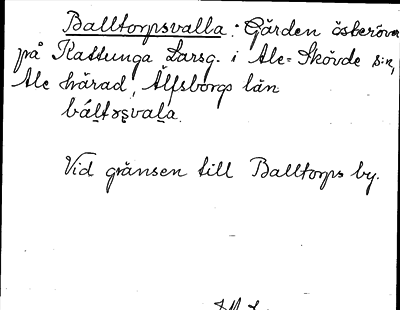 Balltorpsvalla: Gärden österöver
på Kattunga Larsg. i Ale-Skövde s:n,
Ale härad, Älfsborgs län
Vid gränsen till Balltorps by.